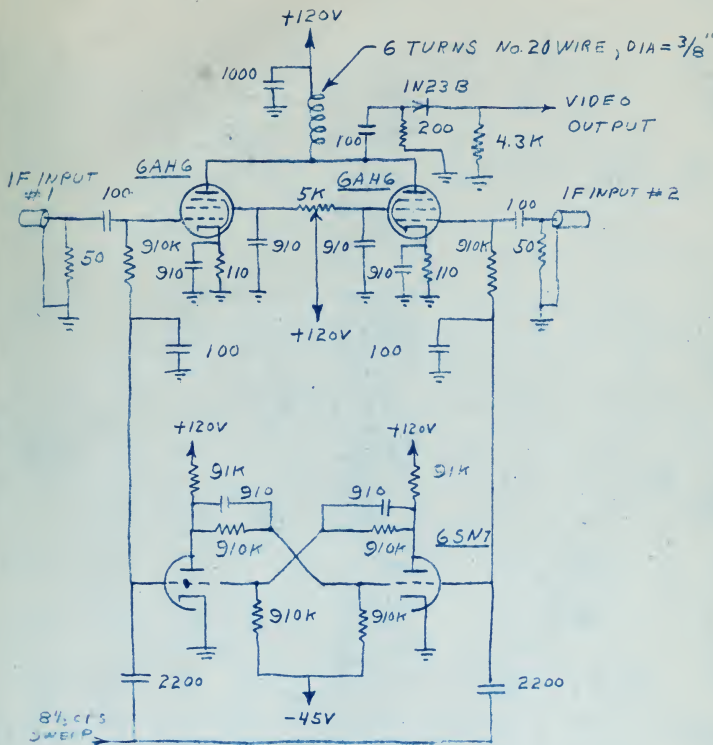 +120V
6 TURNS No. 20 WIRE, DIA = 3/8"
1000
1N23B
100
200
VIDEO
OUTPUT
4.3K
IF INPUT
#1
100
6AH6
5K
6AH6
100
IF INPUT #2
50
910K
910
110
910
910
910
110
910K
50
+120V
100
100
+120V
+120V
91K
91K
910
910
910K
910K
6SN7
910K
910K
2200
2200
-45V
8⅓ CPS
SWEEP